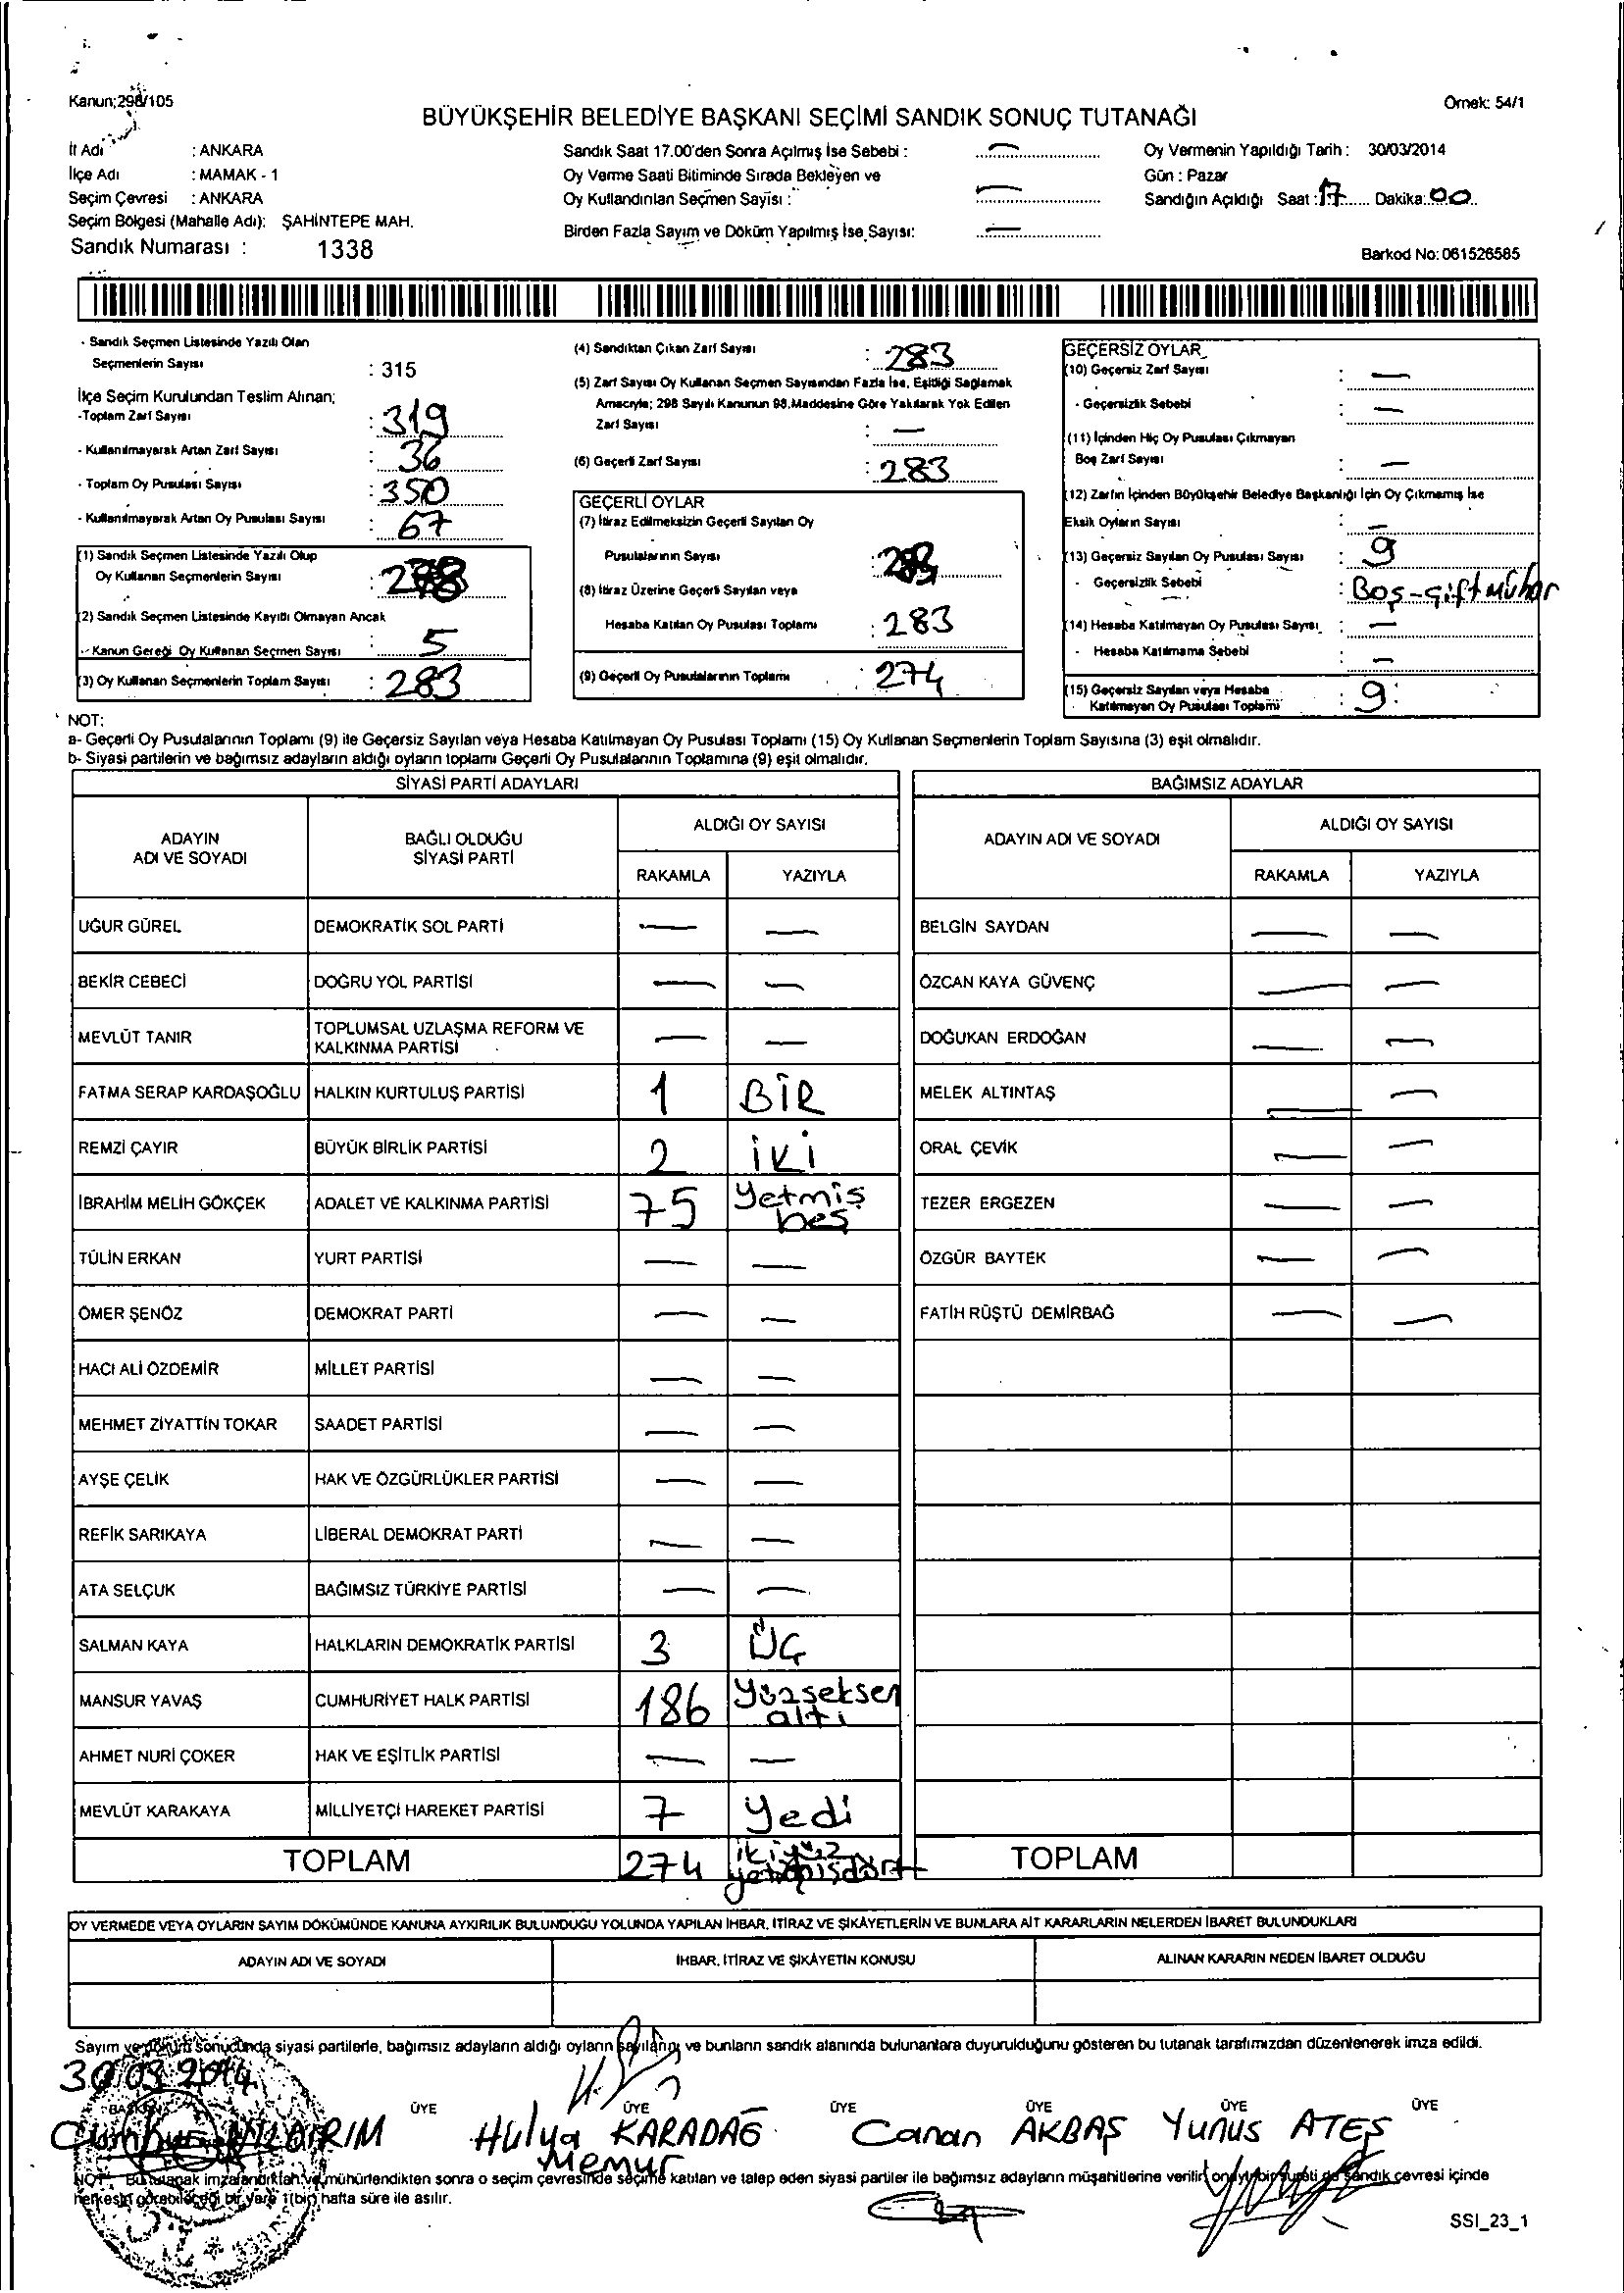 Kanun;298/105
Örnek: 54/1
BÜYÜKŞEHİR BELEDİYE BAŞKANI SEÇİMİ SANDIK SONUÇ TUTANAĞI
İl Adı : ANKARA
İlçe Adı : MAMAK - 1
Seçim Çevresi : ANKARA
Seçim Bölgesi (Mahalle Adı): ŞAHİNTEPE MAH.
Sandık Numarası : 1338
Sandık Saat 17.00'den Sonra Açılmış İse Sebebi : —
Oy Verme Saati Bitiminde Sırada Bekleyen ve
Oy Kullandırılan Seçmen Sayısı : —
Birden Fazla Sayım ve Döküm Yapılmış İse Sayısı: —
Oy Vermenin Yapıldığı Tarih : 30/03/2014
Gün : Pazar
Sandığın Açıldığı Saat : 17 Dakika: 00
Barkod No: 061526585
- Sandık Seçmen Listesinde Yazılı Olan
Seçmenlerin Sayısı : 315
İlçe Seçim Kurulundan Teslim Alınan;
-Toplam Zarf Sayısı : 319
- Kullanılmayarak Artan Zarf Sayısı : 36
- Toplam Oy Pusulası Sayısı : 350
- Kullanılmayarak Artan Oy Pusulası Sayısı : 67
(1) Sandık Seçmen Listesinde Yazılı Olup
Oy Kullanan Seçmenlerin Sayısı : 278
(2) Sandık Seçmen Listesinde Kayıtlı Olmayan Ancak
- Kanun Gereği Oy Kullanan Seçmen Sayısı : 5
(3) Oy Kullanan Seçmenlerin Toplam Sayısı : 283
(4) Sandıktan Çıkan Zarf Sayısı : 283
(5) Zarf Sayısı Oy Kullanan Seçmen Sayısından Fazla İse, Eşitliği Sağlamak
Amacıyla; 298 Sayılı Kanunun 98.Maddesine Göre Yakılarak Yok Edilen
Zarf Sayısı : —
(6) Geçerli Zarf Sayısı : 283
GEÇERLİ OYLAR
(7) İtiraz Edilmeksizin Geçerli Sayılan Oy
Pusulalarının Sayısı :
(8) İtiraz Üzerine Geçerli Sayılan veya
Hesaba Katılan Oy Pusulası Toplamı : 283
(9) Geçerli Oy Pusulalarının Toplamı : 274
GEÇERSİZ OYLAR
(10) Geçersiz Zarf Sayısı : —
- Geçersizlik Sebebi : —
(11) İçinden Hiç Oy Pusulası Çıkmayan
Boş Zarf Sayısı : —
(12) Zarfın İçinden Büyükşehir Belediye Başkanlığı İçin Oy Çıkmamış İse
Eksik Oyların Sayısı : —
(13) Geçersiz Sayılan Oy Pusulası Sayısı : 9
- Geçersizlik Sebebi : Boş-çift Mühür
(14) Hesaba Katılmayan Oy Pusulası Sayısı : —
- Hesaba Katılmama Sebebi : —
(15) Geçersiz Sayılan veya Hesaba
Katılmayan Oy Pusulası Toplamı : 9
NOT:
a- Geçerli Oy Pusulalarının Toplamı (9) ile Geçersiz Sayılan veya Hesaba Katılmayan Oy Pusulası Toplamı (15) Oy Kullanan Seçmenlerin Toplam Sayısına (3) eşit olmalıdır.
b- Siyasi partilerin ve bağımsız adayların aldığı oyların toplamı Geçerli Oy Pusulalarının Toplamına (9) eşit olmalıdır.
SİYASİ PARTİ ADAYLARI
ADAYIN ADI VE SOYADI BAĞLI OLDUĞU SİYASİ PARTİ ALDIĞI OY SAYISI
RAKAMLA YAZIYLA
UĞUR GÜREL DEMOKRATİK SOL PARTİ — —
BEKİR CEBECİ DOĞRU YOL PARTİSİ — —
MEVLÜT TANIR TOPLUMSAL UZLAŞMA REFORM VE KALKINMA PARTİSİ — —
FATMA SERAP KARDAŞOĞLU HALKIN KURTULUŞ PARTİSİ 1 BİR
REMZİ ÇAYIR BÜYÜK BİRLİK PARTİSİ 2 İKİ
İBRAHİM MELİH GÖKÇEK ADALET VE KALKINMA PARTİSİ 75 Yetmiş beş
TÜLİN ERKAN YURT PARTİSİ — —
ÖMER ŞENÖZ DEMOKRAT PARTİ — —
HACI ALİ ÖZDEMİR MİLLET PARTİSİ — —
MEHMET ZİYATTİN TOKAR SAADET PARTİSİ — —
AYŞE ÇELİK HAK VE ÖZGÜRLÜKLER PARTİSİ — —
REFİK SARIKAYA LİBERAL DEMOKRAT PARTİ — —
ATA SELÇUK BAĞIMSIZ TÜRKİYE PARTİSİ — —
SALMAN KAYA HALKLARIN DEMOKRATİK PARTİSİ 3 ÜÇ
MANSUR YAVAŞ CUMHURİYET HALK PARTİSİ 186 Yüzseksen altı
AHMET NURİ ÇOKER HAK VE EŞİTLİK PARTİSİ — —
MEVLÜT KARAKAYA MİLLİYETÇİ HAREKET PARTİSİ 7 Yedi
TOPLAM 274 ikiyüz yetmişdört
BAĞIMSIZ ADAYLAR
ADAYIN ADI VE SOYADI ALDIĞI OY SAYISI
RAKAMLA YAZIYLA
BELGİN SAYDAN — —
ÖZCAN KAYA GÜVENÇ — —
DOĞUKAN ERDOĞAN — —
MELEK ALTINTAŞ — —
ORAL ÇEVİK — —
TEZER ERGEZEN — —
ÖZGÜR BAYTEK — —
FATİH RÜŞTÜ DEMİRBAĞ — —
TOPLAM
OY VERMEDE VEYA OYLARIN SAYIM DÖKÜMÜNDE KANUNA AYKIRILIK BULUNDUĞU YOLUNDA YAPILAN İHBAR, İTİRAZ VE ŞİKÂYETLERİN VE BUNLARA AİT KARARLARIN NELERDEN İBARET BULUNDUKLARI
ADAYIN ADI VE SOYADI İHBAR, İTİRAZ VE ŞİKÂYETİN KONUSU ALINAN KARARIN NEDEN İBARET OLDUĞU
Sayım ve döküm sonucunda siyasi partilerle, bağımsız adayların aldığı oyların sayılarını ve bunların sandık alanında bulunanlara duyurulduğunu gösteren bu tutanak tarafımızdan düzenlenerek imza edildi.
30.03.2014
BAŞKAN ÜYE ÜYE ÜYE ÜYE ÜYE ÜYE
YILDIRIM Hülya KARADAĞ Canan AKBAŞ Yunus ATEŞ
Memur
NOT: Bu tutanak imzalandıktan ve mühürlendikten sonra o seçim çevresinde seçime katılan ve talep eden siyasi partiler ile bağımsız adayların müşahitlerine verilir, onaylı bir sureti de sandık çevresi içinde
herkesin görebileceği bir yere 1(bir) hafta süre ile asılır.
SSI_23_1